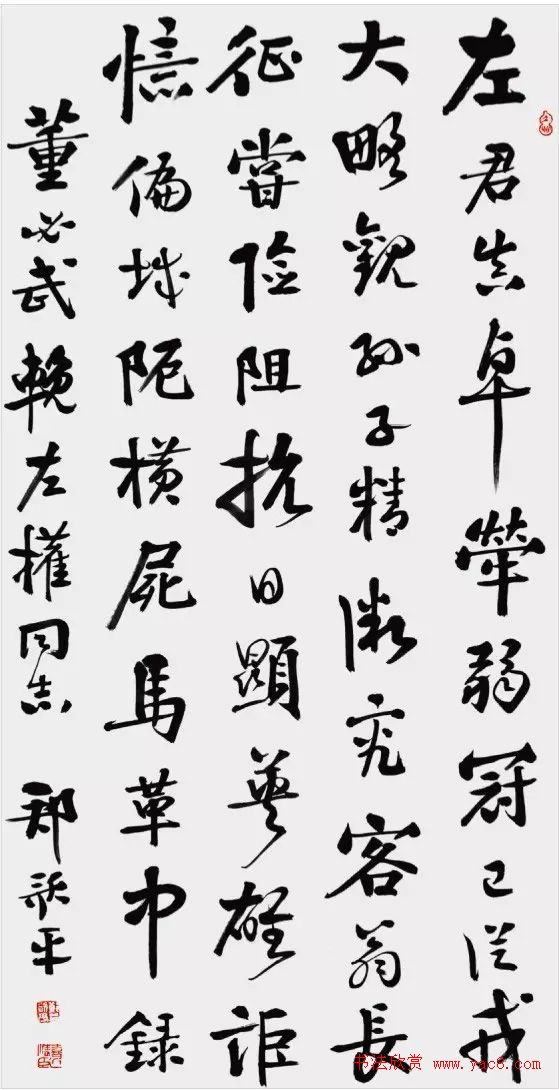 左君真卓犖弱冠已從戎
大略觀孫子精微究客翁長
征嘗險阻抗日顯英雄詎
憶偏城陌橫屍馬革中録
董必武輓左權同志 郑平
书法欣赏 www.yac8.com